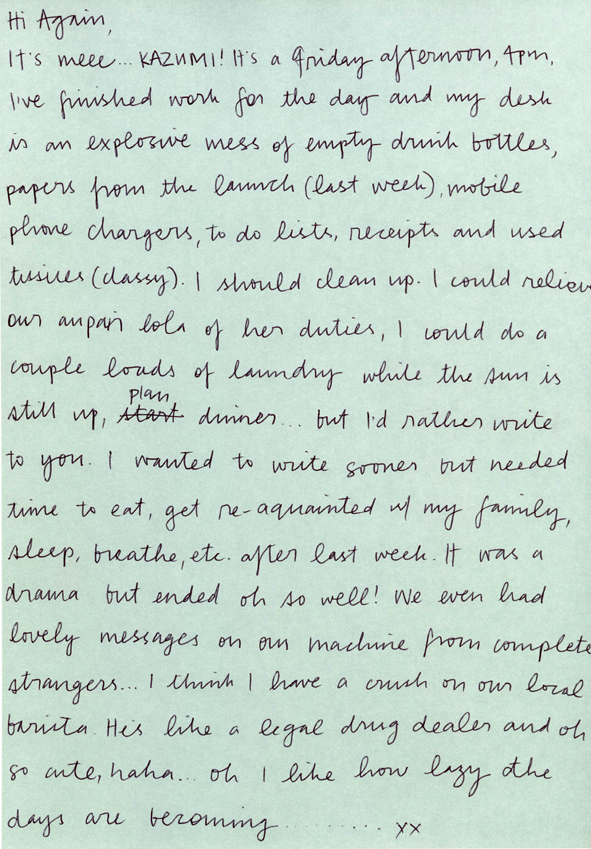 Hi Again,
It's meee... KAZUMI! It's a friday afternoon, 4pm,
I've finished work for the day and my desk
is an explosive mess of empty drink bottles,
papers from the launch (last week), mobile
phone chargers, to do lists, receipts and used
tissues (classy). I should clean up. I could relieve
our aupair lola of her duties, I could do a
couple loads of laundry while the sun is
plan
still up, start dinner... but I'd rather write
to you. I wanted to write sooner but needed
time to eat, get re-aquainted w/ my family,
sleep, breathe, etc. after last week. It was a
drama but ended oh so well! We even had
lovely messages on our machine from complete
strangers... I think I have a crush on our local
barista. He's like a legal drug dealer and oh
so cute, haha... oh I like how lazy the
days are becoming......... xx